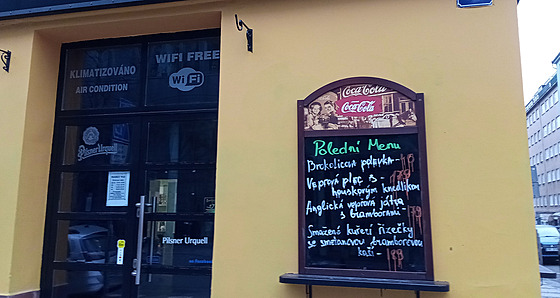 KLIMATIZOVÁNO
AIR CONDITION
WIFI FREE
WiFi
Pilsner Urquell
Pilsner Urquell
Coca-Cola
Coca-Cola
Polední Menu
Brokolicová polévka-
Vepřová plec s
houskovým knedlíkem
Anglická vepřová játra
s bramborami
Smažené kuřecí řízečky
se smetanovou bramborovou
kaší-